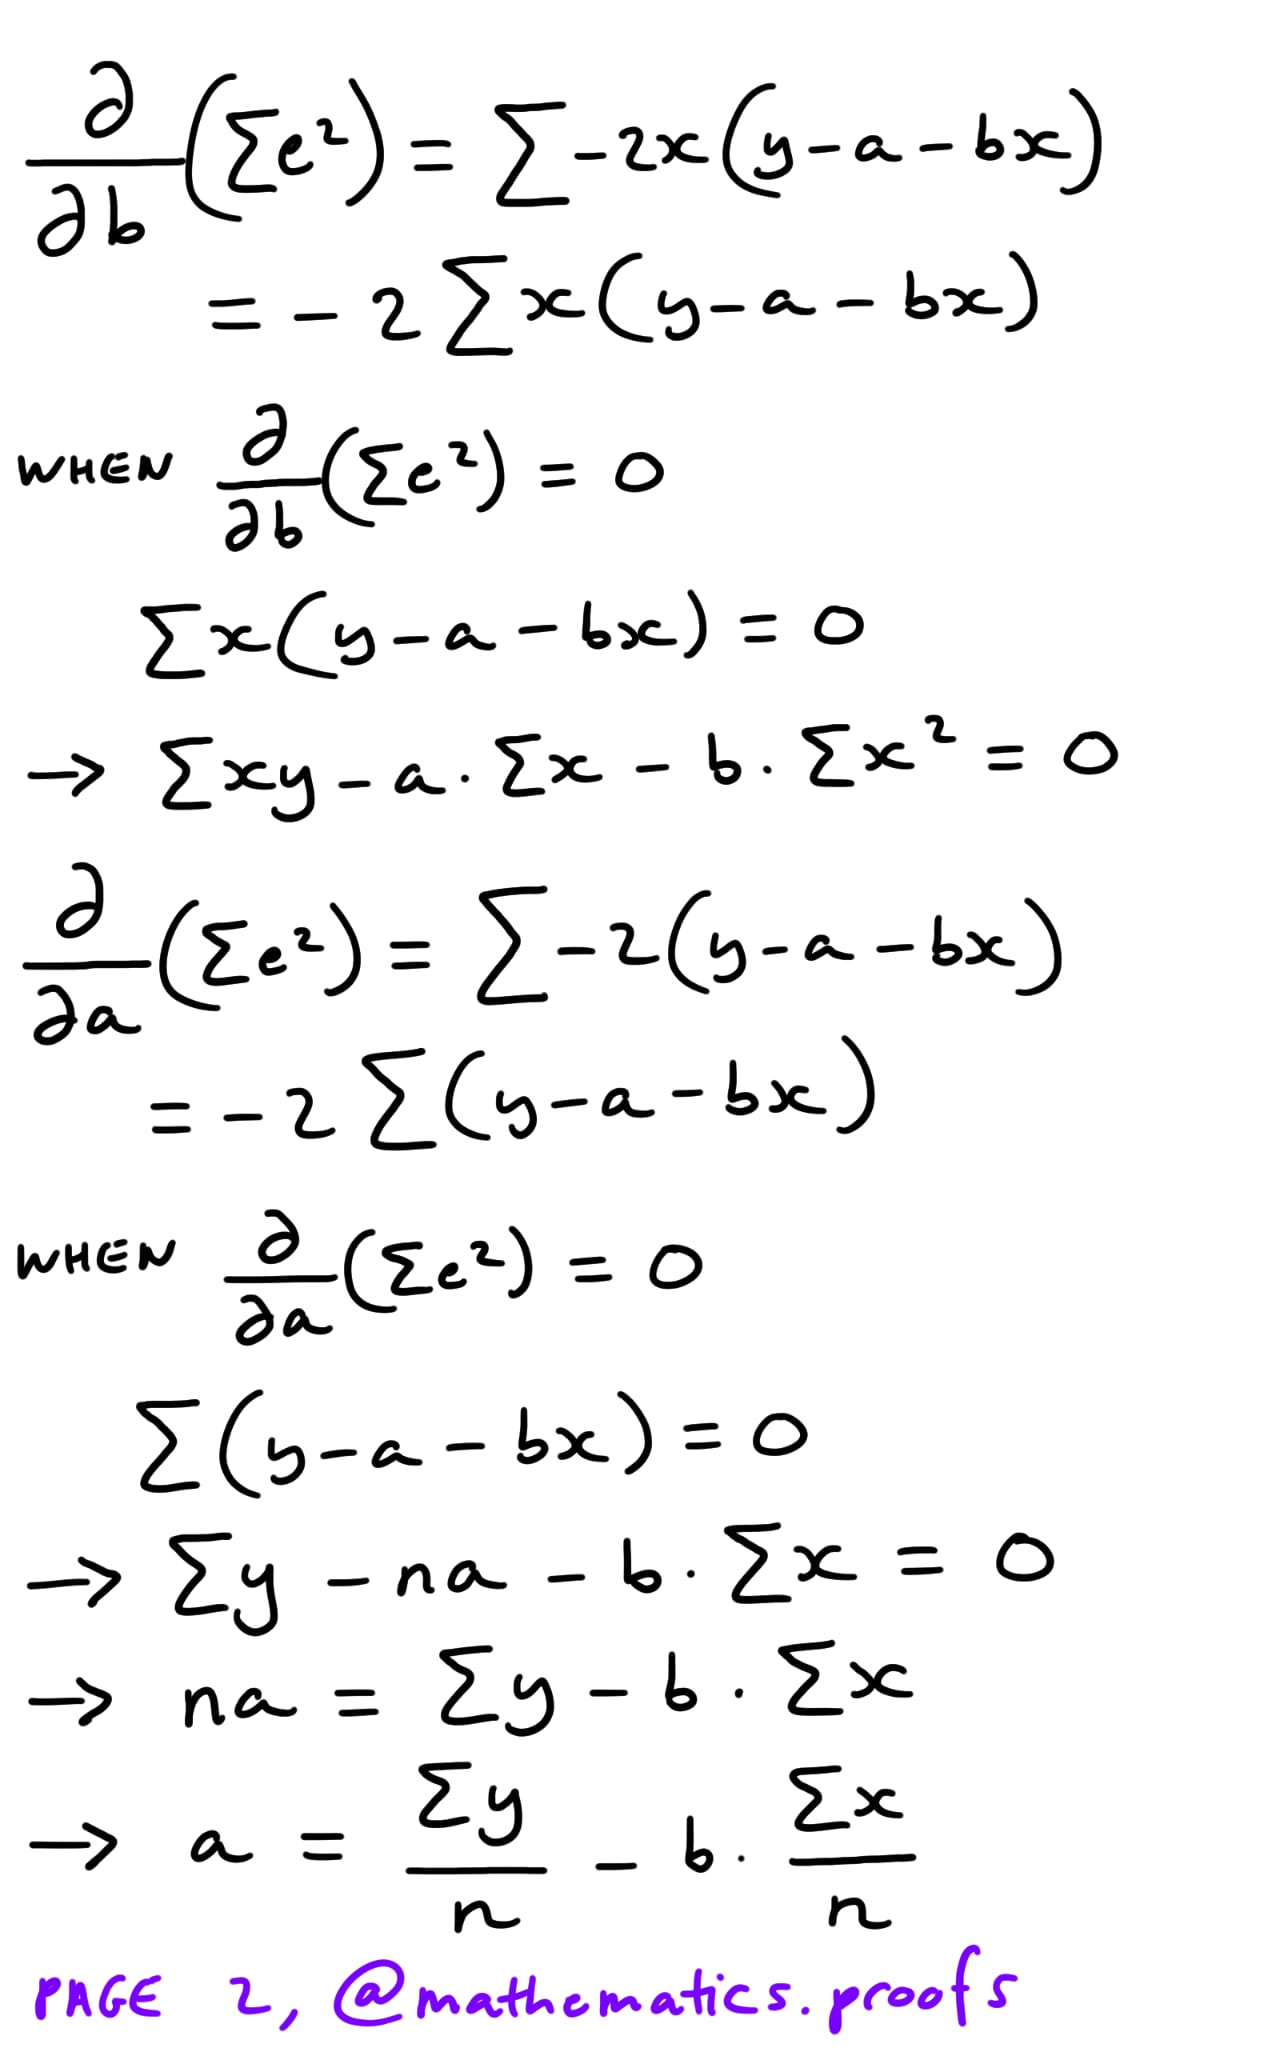 ∂/∂b (Σe²) = Σ -2x(y-a-bx)
= -2Σx(y-a-bx)
WHEN ∂/∂b (Σe²) = 0
Σx(y-a-bx) = 0
→ Σxy - a · Σx - b · Σx² = 0
∂/∂a (Σe²) = Σ -2(y-a-bx)
= -2Σ(y-a-bx)
WHEN ∂/∂a (Σe²) = 0
Σ(y-a-bx) = 0
→ Σy - na - b · Σx = 0
→ na = Σy - b · Σx
→ a = Σy/n - b · Σx/n
PAGE 2, @mathematics.proofs